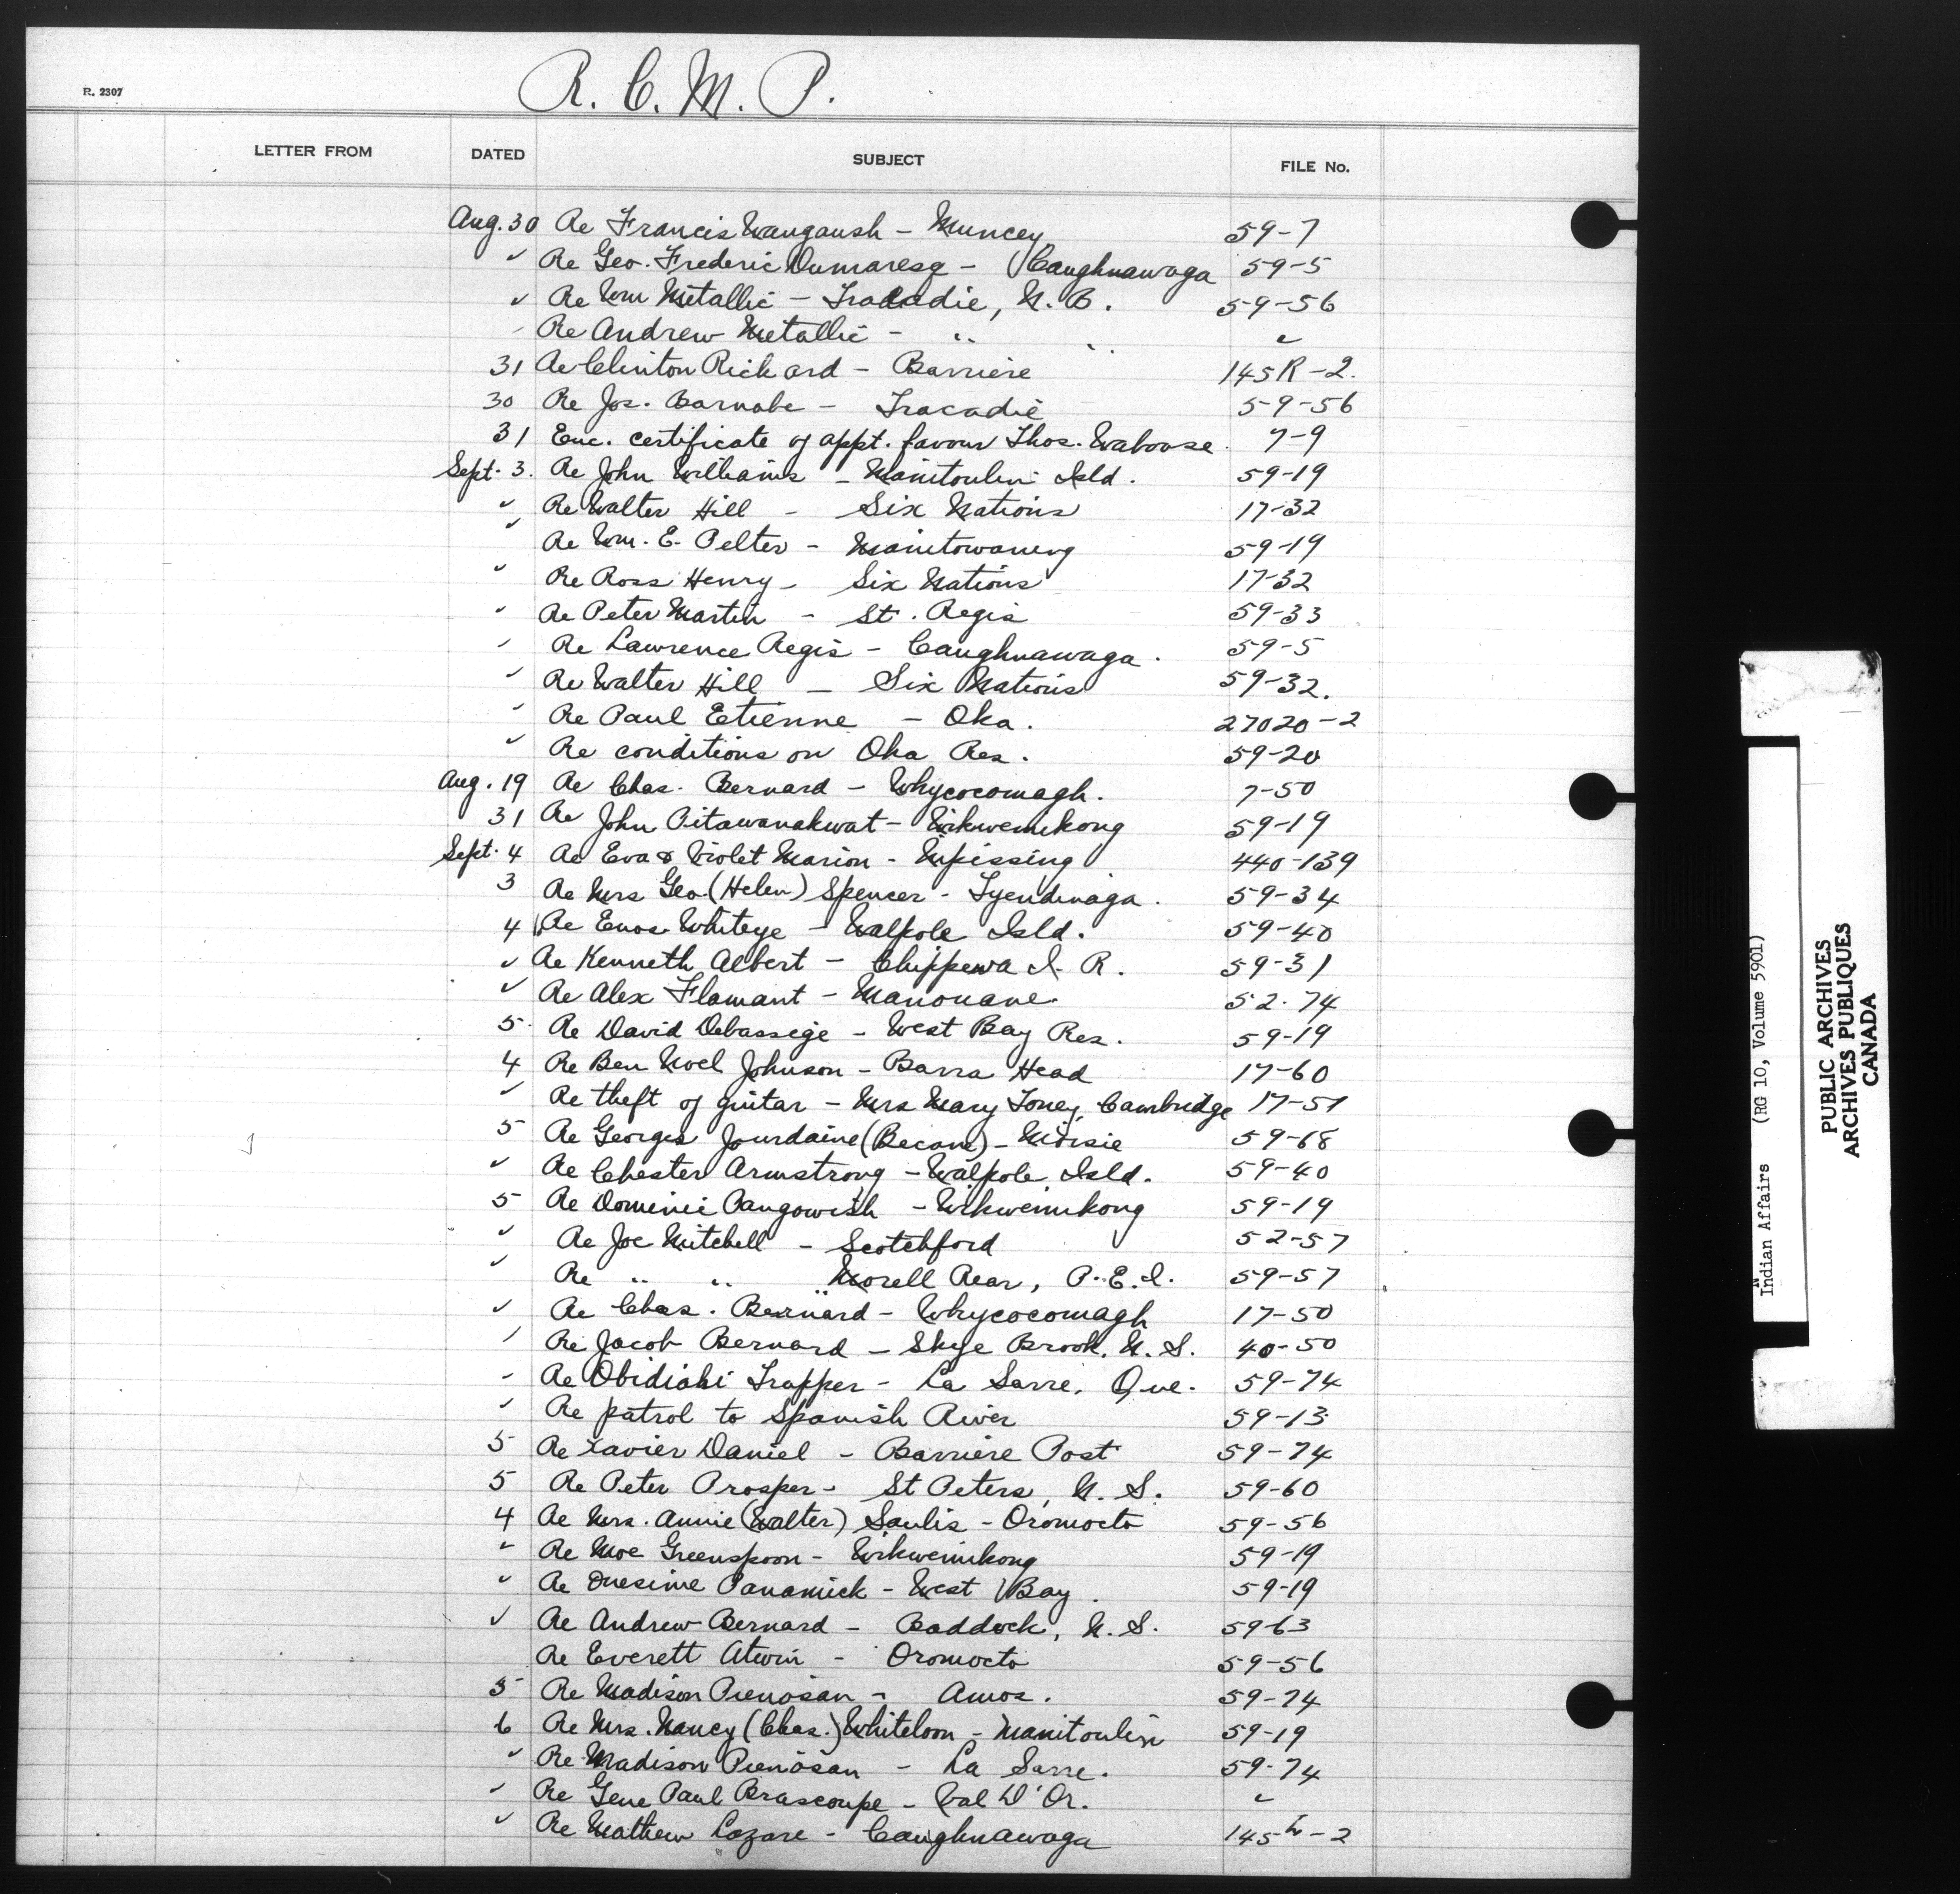 R. C. M. P.
R. 2307
LETTER FROM DATED SUBJECT FILE No.
Aug. 30 Re Francis Waugaush - Muncey 59-7
" Re Geo. Frederic Dumaresq - Caughnawaga 59-5
" Re Wm Metallic - Tracadie, N. B. 59-56
" Re Andrew Metallic - " " "
31 Re Clinton Rickard - Barriere 145R-2.
30 Re Jos. Barnabe - Tracadie 59-56
31 Enc. certificate of appt. favour Thos. Waboose. 7-9
Sept. 3. Re John Williams - Manitoulin Isld. 59-19
" Re Walter Hill - Six Nations 17-32
" Re Wm. E. Pelter - Manitowaning 59-19
" Re Ross Henry - Six Nations 17-32
" Re Peter Martin - St. Regis 59-33
" Re Lawrence Regis - Caughnawaga. 59-5
" Re Walter Hill - Six Nations 59-32.
" Re Paul Etienne - Oka. 27020-2
" Re conditions on Oka Res. 59-20
Aug. 19 Re Chas. Bernard - Whycocomagh. 7-50
31 Re John Pitawanakwat - Wikwemikong 59-19
Sept. 4 Re Eva & Violet Marion - Nipissing 440-139
3 Re Mrs Geo. (Helen) Spencer - Tyendinaga. 59-34
4 Re Enos Whiteye - Walpole Isld. 59-40
" Re Kenneth Albert - Chippewa I. R. 59-31
" Re Alex Flamant - Manouane. 52-74
5 Re David Debassige - West Bay Res. 59-19
4 Re Ben Noel Johnson - Barra Head 17-60
" Re theft of guitar - Mrs Mary Toney, Cambridge 17-57
5 Re Georges Jourdaine (Becane) - Moisie 59-68
" Re Chester Armstrong - Walpole Isld. 59-40
5 Re Dominic Pangowish - Wikwemikong 59-19
" Re Joe Mitchell - Scotchford 52-57
" Re " " " Morell Rear, P.E.I. 59-57
" Re Chas. Bernard - Whycocomagh 17-50
" Re Jacob Bernard - Skye Brook. N. S. 40-50
" Re Obidiahi Trapper - La Sarre, Que. 59-74
" Re patrol to Spanish River 59-13
5 Re Xavier Daniel - Barriere Post 59-74
5 Re Peter Prosper - St Peters, N. S. 59-60
4 Re Mrs. Annie (Walter) Saulis - Oromocto 59-56
" Re Moe Greenspoon - Wikwemikong 59-19
" Re Onesime Panamick - West Bay. 59-19
" Re Andrew Bernard - Baddeck, N. S. 59-63
Re Everett Atwin - Oromocto 59-56
5 Re Madison Pienosan - Amos. 59-74
6 Re Mrs. Nancy (Chas.) Whiteloon - Manitoulin 59-19
" Re Madison Pienosan - La Sarre. 59-74
" Re Gene Paul Brascoupe - Val D'Or. "
" Re Mathew Lazare - Caughnawaga 145L-2
Indian Affairs (RG 10, Volume 5901)
PUBLIC ARCHIVES
ARCHIVES PUBLIQUES
CANADA